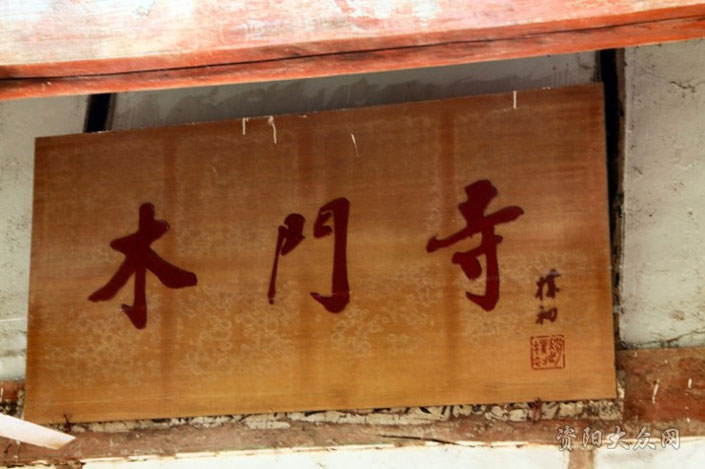 木門寺
樸初
资阳大众网